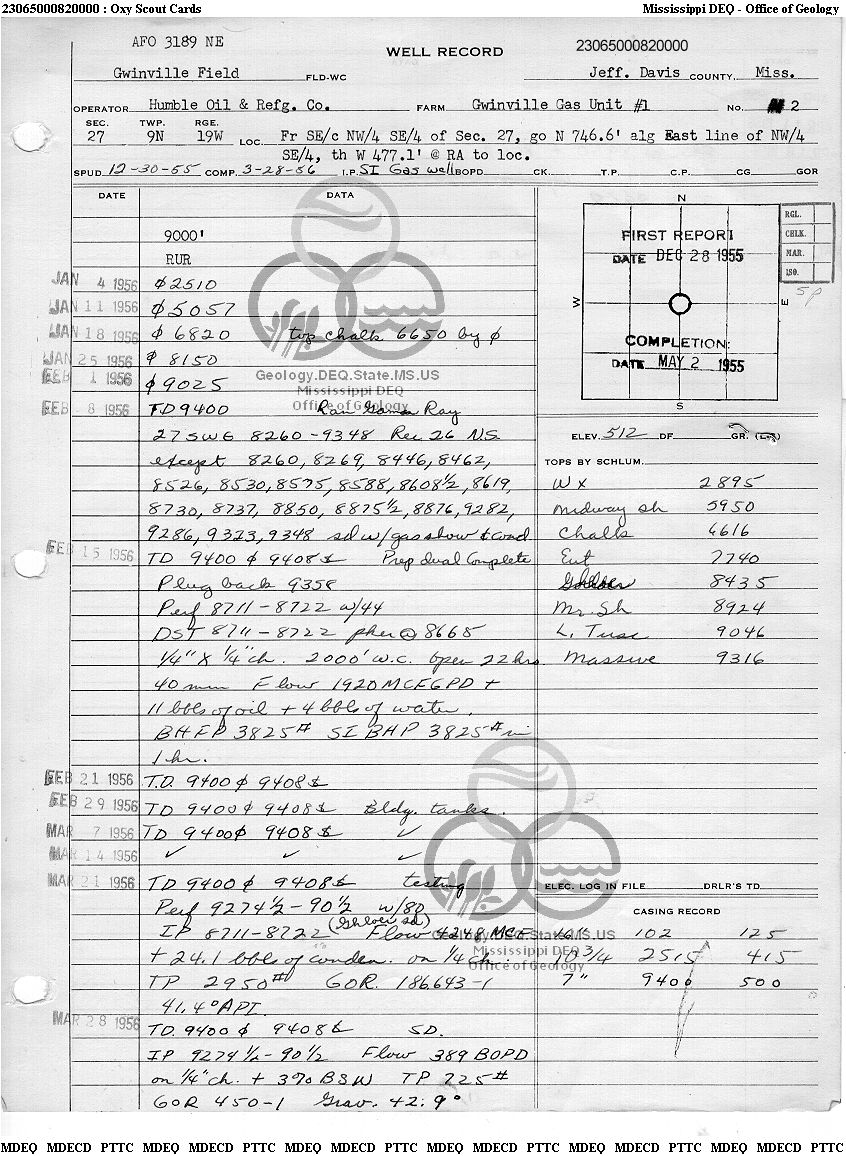 23065000820000 : Oxy Scout Cards Mississippi DEQ - Office of Geology
AFO 3189 NE WELL RECORD 23065000820000
Gwinville Field FLD-WC Jeff. Davis COUNTY, Miss.
OPERATOR Humble Oil & Refg. Co. FARM Gwinville Gas Unit #1 NO. 2
SEC. TWP. RGE.
27 9N 19W LOC. Fr SE/c NW/4 SE/4 of Sec. 27, go N 746.6' alg East line of NW/4
SE/4, th W 477.1' @ RA to loc.
SPUD 12-30-55 COMP. 3-28-56 I.P. SI Gas well BOPD CK. T.P. C.P. CG GOR
DATE DATA
9000'
RUR
JAN 4 1956 φ2510
JAN 11 1956 φ5057
JAN 18 1956 φ 6820 top chalk 6650 by φ
JAN 25 1956 φ 8150
FEB 1 1956 φ9025
Geology.DEQ.State.MS.US
Mississippi DEQ
Office of Geology
FEB 8 1956 TD 9400 Ran Gamma Ray
27 SWS 8260-9348 Rec 26 NS
except 8260, 8269, 8446, 8462,
8526, 8530, 8575, 8588, 8608½, 8619,
8730, 8737, 8850, 8875½, 8876, 9282,
9286, 9323, 9348 sd w/gas show & cond
FEB 15 1956 TD 9400 φ 9408 Prep dual Complete
Plug back 9358
Perf 8711-8722 w/44
DST 8711-8722 pker @ 8665
¼" X ¼" ch. 2000' w.c. open 22 hrs
40 min Flow 1920 MCFGPD +
11 bbls of oil + 4 bbls of water.
BHFP 3825# SI BHP 3825# in
1 hr.
FEB 21 1956 T.D. 9400 φ 9408
FEB 29 1956 TD 9400 φ 9408 Bldg. tanks.
MAR 7 1956 TD 9400 φ 9408 ✓
MAR 14 1956 ✓ ✓ ✓
MAR 21 1956 TD 9400 φ 9408 testing
Perf 9274½-90½ w/80
IP 8711-8722 Flow 4248 MCF
+ 24.1 bbls of conden. on ¼ ch.
TP 2950# GOR. 186,643-1
41.4° API.
MAR 28 1956 TD. 9400 φ 9408 SD.
IP 9274½-90½ Flow 389 BOPD
on ¼" ch. + 3% BSW TP 725#
GOR 450-1 Grav. 42.9°
N
FIRST REPORT
DATE DEC 28 1955
W E
COMPLETION:
DATE MAY 2 1955
S
RGL.
CHLK.
MAR.
ISO.
ELEV. 512 DF GR.
TOPS BY SCHLUM.
WX 2895
Midway sh 5950
Chalk 6616
Eut 7740
8435
Mr. Sh 8924
L. Tusc 9046
Massive 9316
ELEC. LOG IN FILE DRLR'S TD
CASING RECORD
Geology.DEQ.State.MS.US
Mississippi DEQ
Office of Geology
102 125
10 3/4 2515 415
7" 9400 500
MDEQ MDECD PTTC MDEQ MDECD PTTC MDEQ MDECD PTTC MDEQ MDECD PTTC MDEQ MDECD PTTC MDEQ MDECD PTTC